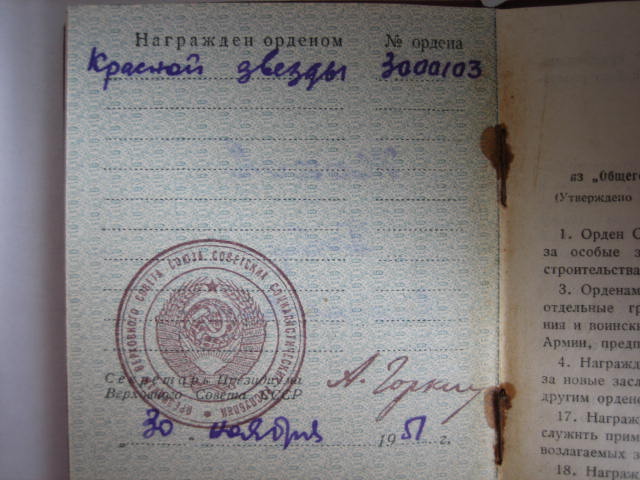 Награжден орденом № ордена
Красной звезды 3000103
ПРЕЗИДИУМ ВЕРХОВНОГО СОВЕТА СОЮЗА СОВЕТСКИХ СОЦИАЛИСТИЧЕСКИХ РЕСПУБЛИК
Секретарь Президиума
Верховного Совета СССР
А. Горкин
„ 30 " ноября 1951 г.
из „Общего
(Утверждено
1. Орден С
за особые з
строительства
3. Орденам
отдельные гр
ния и воинск
Армии, предп
4. Награжд
за новые засл
другим ордено
17. Награж
служить прим
возлагаемых з
18. Награж